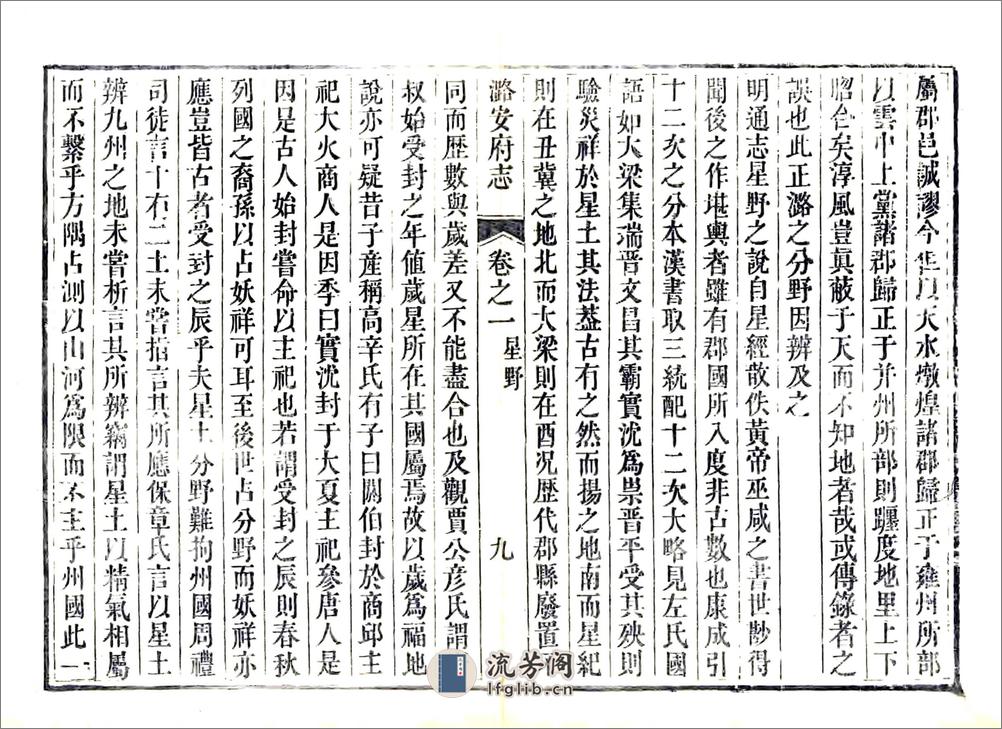 屬郡邑誠謬今畢以天水燉煌諸郡歸正于雍州所部
以雲中上黨諸郡歸正于并州所部則躔度地里上下
昭合矣淳風豈眞蔽于天而不知地者哉或傳錄者之
誤也此正潞之分野因辨及之
明通志星野之說自星經散佚黃帝巫咸之書世尠得
聞後之作堪輿者雖有郡國所入度非古數也康成引
十二次之分本漢書取三統配十二次大略見左氏國
語如大梁集端晋文昌其霸實沈爲祟晋平受其殃則
驗災祥於星土其法葢古有之然而揚之地南而星紀
則在丑冀之地北而大梁則在酉况歷代郡縣廢置
潞安府志 卷之一 星野 九
同而歷數與歲差又不能盡合也及觀賈公彦氏謂
叔始受封之年值歲星所在其國屬焉故以歲爲福地
說亦可疑昔子産稱高辛氏有子曰閼伯封於商邱主
祀大火商人是因季曰實沈封于大夏主祀參唐人是
因是古人始封嘗命以主祀也若謂受封之辰則春秋
列國之裔孫以占妖祥可耳至後世占分野而妖祥亦
應豈皆古者受封之辰乎夫星土分野難拘州國周禮
司徒言十有二土未嘗指言其所應保章氏言以星土
辨九州之地未嘗析言其所辨竊謂星土以精氣相屬
而不繫乎方隅占測以山河爲限而不主乎州國此一
流芳阁
lfglib.cn